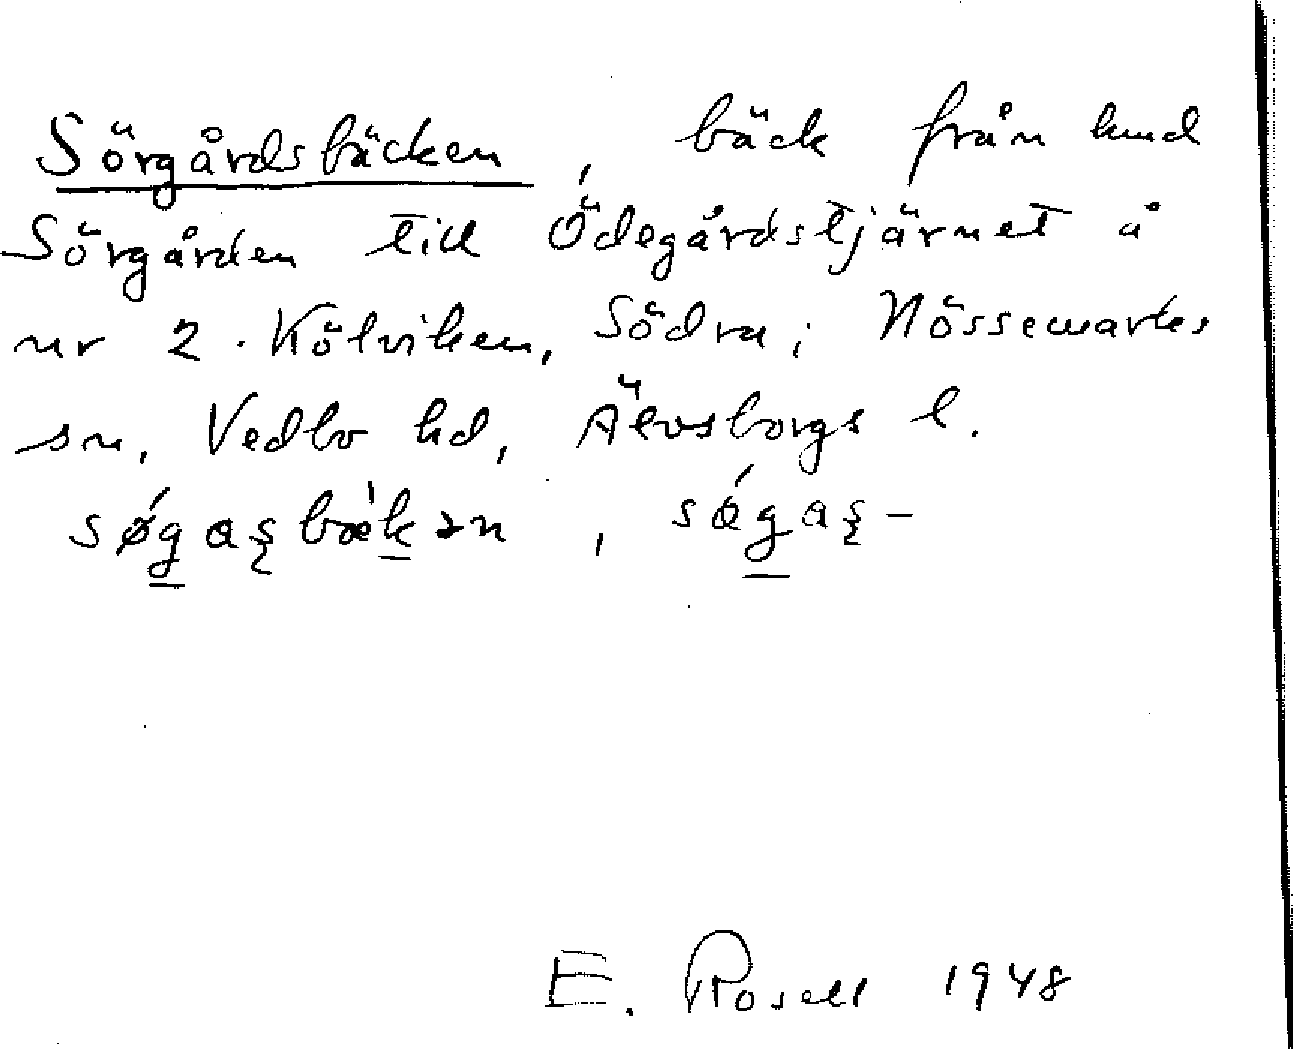 Sörgårdsbäcken, bäck från lund
Sörgården till Ödegårdstjärnet å
nr 2. Kölviken, Södra; Nössemarks
sn, Vedbo hd, Älvsborgs l.
E. Rosell 1948